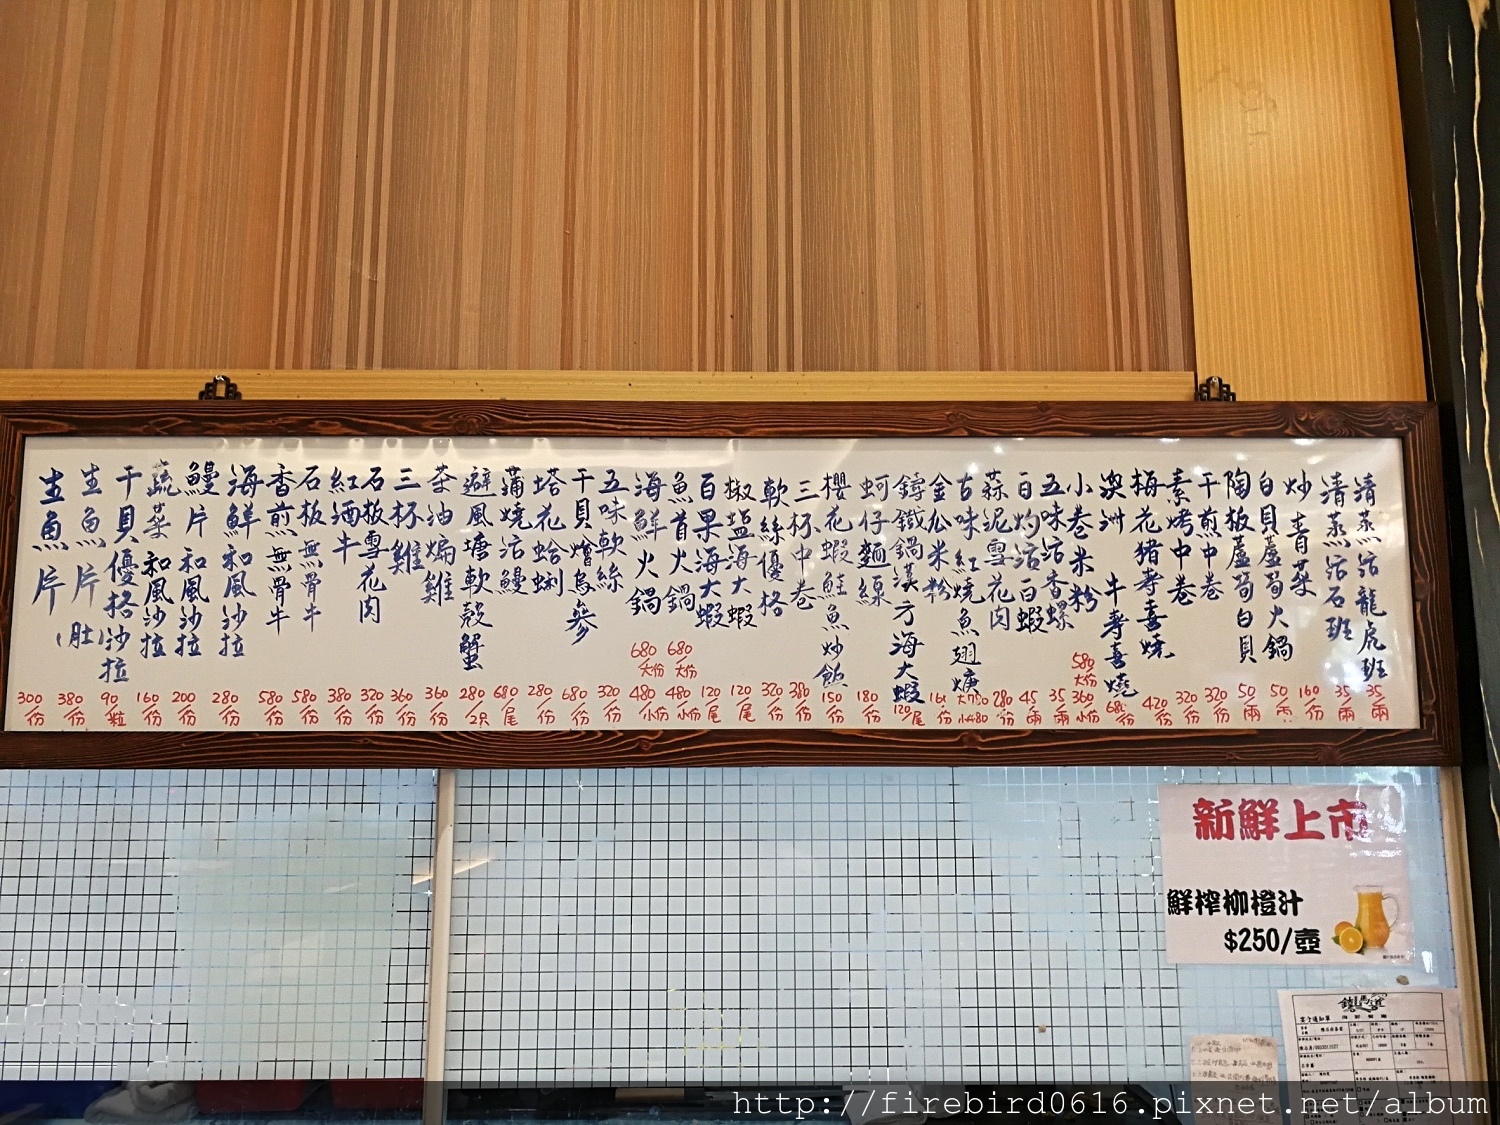 清蒸活龍虎斑 35/兩
清蒸活石斑 35/兩
炒青菜 160/份
白貝蘆筍火鍋 50/兩
陶板蘆筍白貝 50/兩
干煎中卷 320/份
素烤中卷 320/份
梅花豬壽喜燒 420/份
澳洲牛壽喜燒 680/份
小卷米粉 580/大份 360/小份
五味活香螺 35/兩
白灼活白蝦 45/兩
蒜泥雪花肉 280/份
古味紅燒魚翅焿
金瓜米粉 160/份
鑄鐵鍋漢方海大蝦 120/尾
蚵仔麵線 180/份
櫻花蝦鮭魚炒飯 150/份
三杯中卷 380/份
軟絲優格 320/份
椒塩海大蝦 120/尾
百果海大蝦 120/尾
魚首火鍋 680/大份 480/小份
海鮮火鍋 680/大份 480/小份
五味軟絲 320/份
干貝燴烏參 680/份
塔花蛤蜊 280/份
蒲燒活鰻 680/尾
避風塘軟殼蟹 280/2只
茶油煸雞 360/份
三杯雞 360/份
石板雪花肉 320/份
紅酒牛 380/份
石板無骨牛 580/份
香煎無骨牛 580/份
海鮮和風沙拉 280/份
鰻片和風沙拉 200/份
蔬菜和風沙拉 160/份
干貝優格沙拉 90/粒
生魚片(肚) 380/份
生魚片 300/份
新鮮上市
鮮榨柳橙汁
$250/壺
http://firebird0616.pixnet.net/album